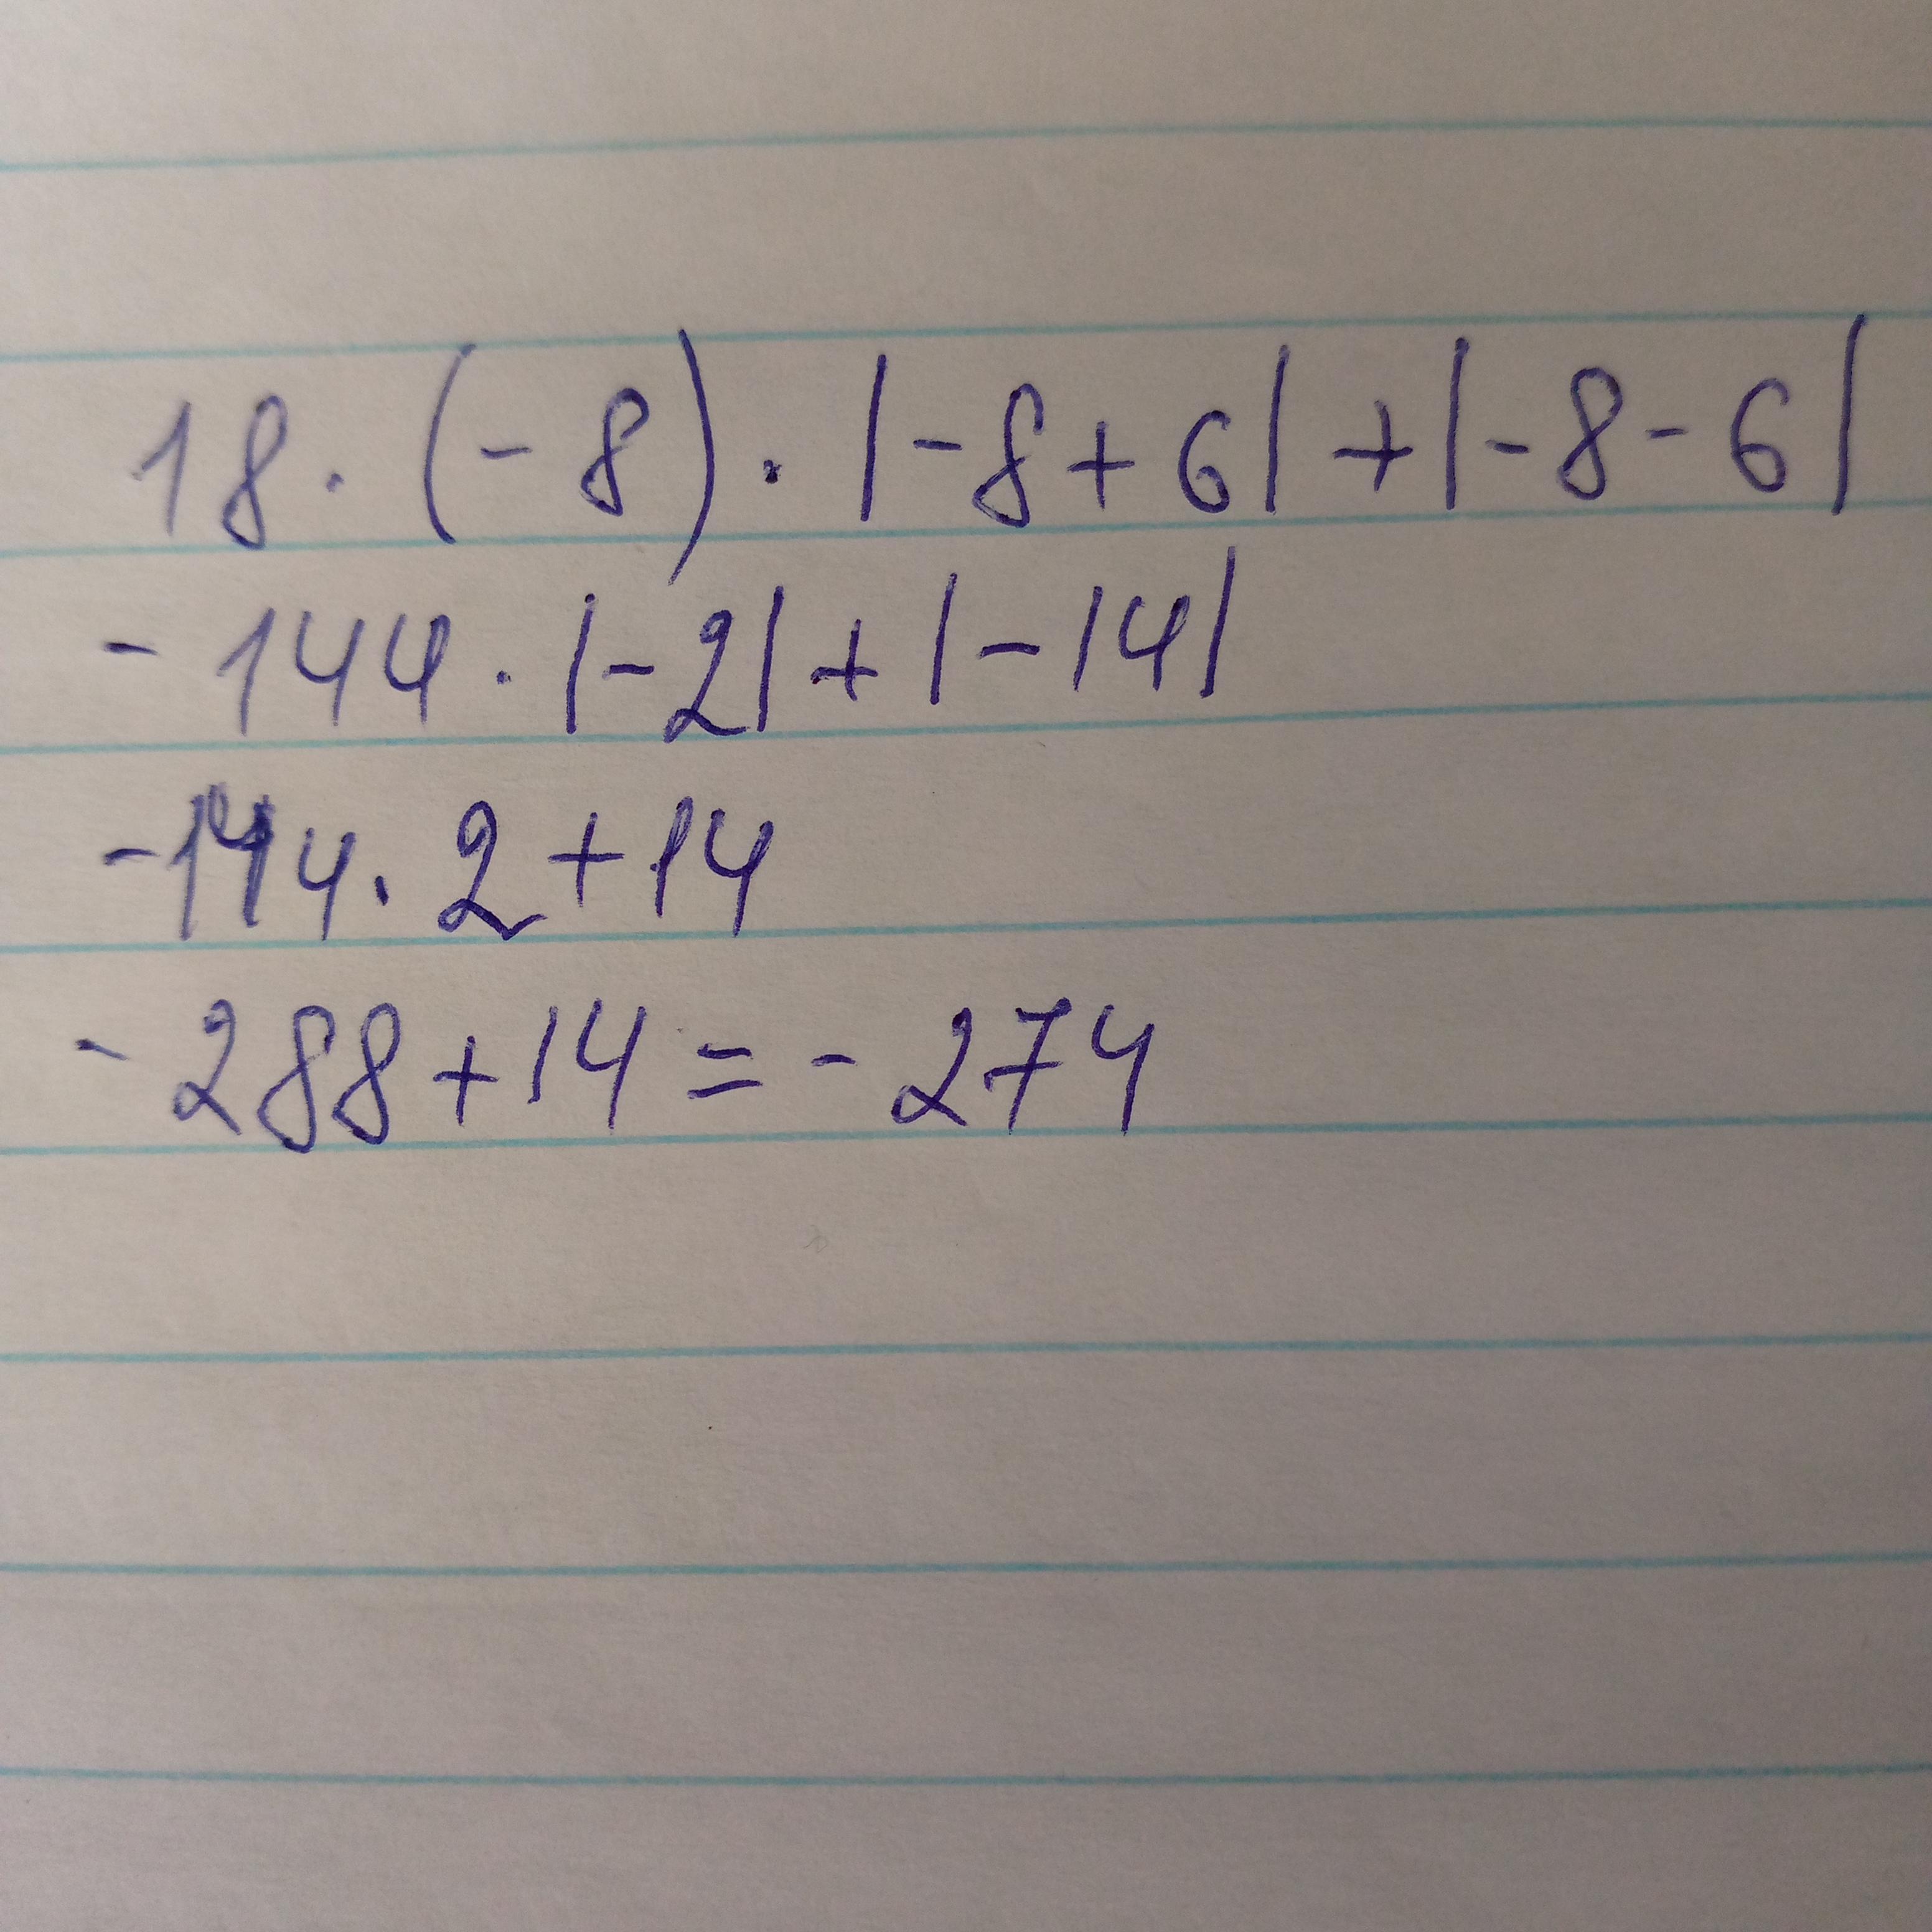 18 · (-8) · |-8+6| + |-8-6|
-144 · |-2| + |-14|
-144 · 2 + 14
-288 + 14 = -274